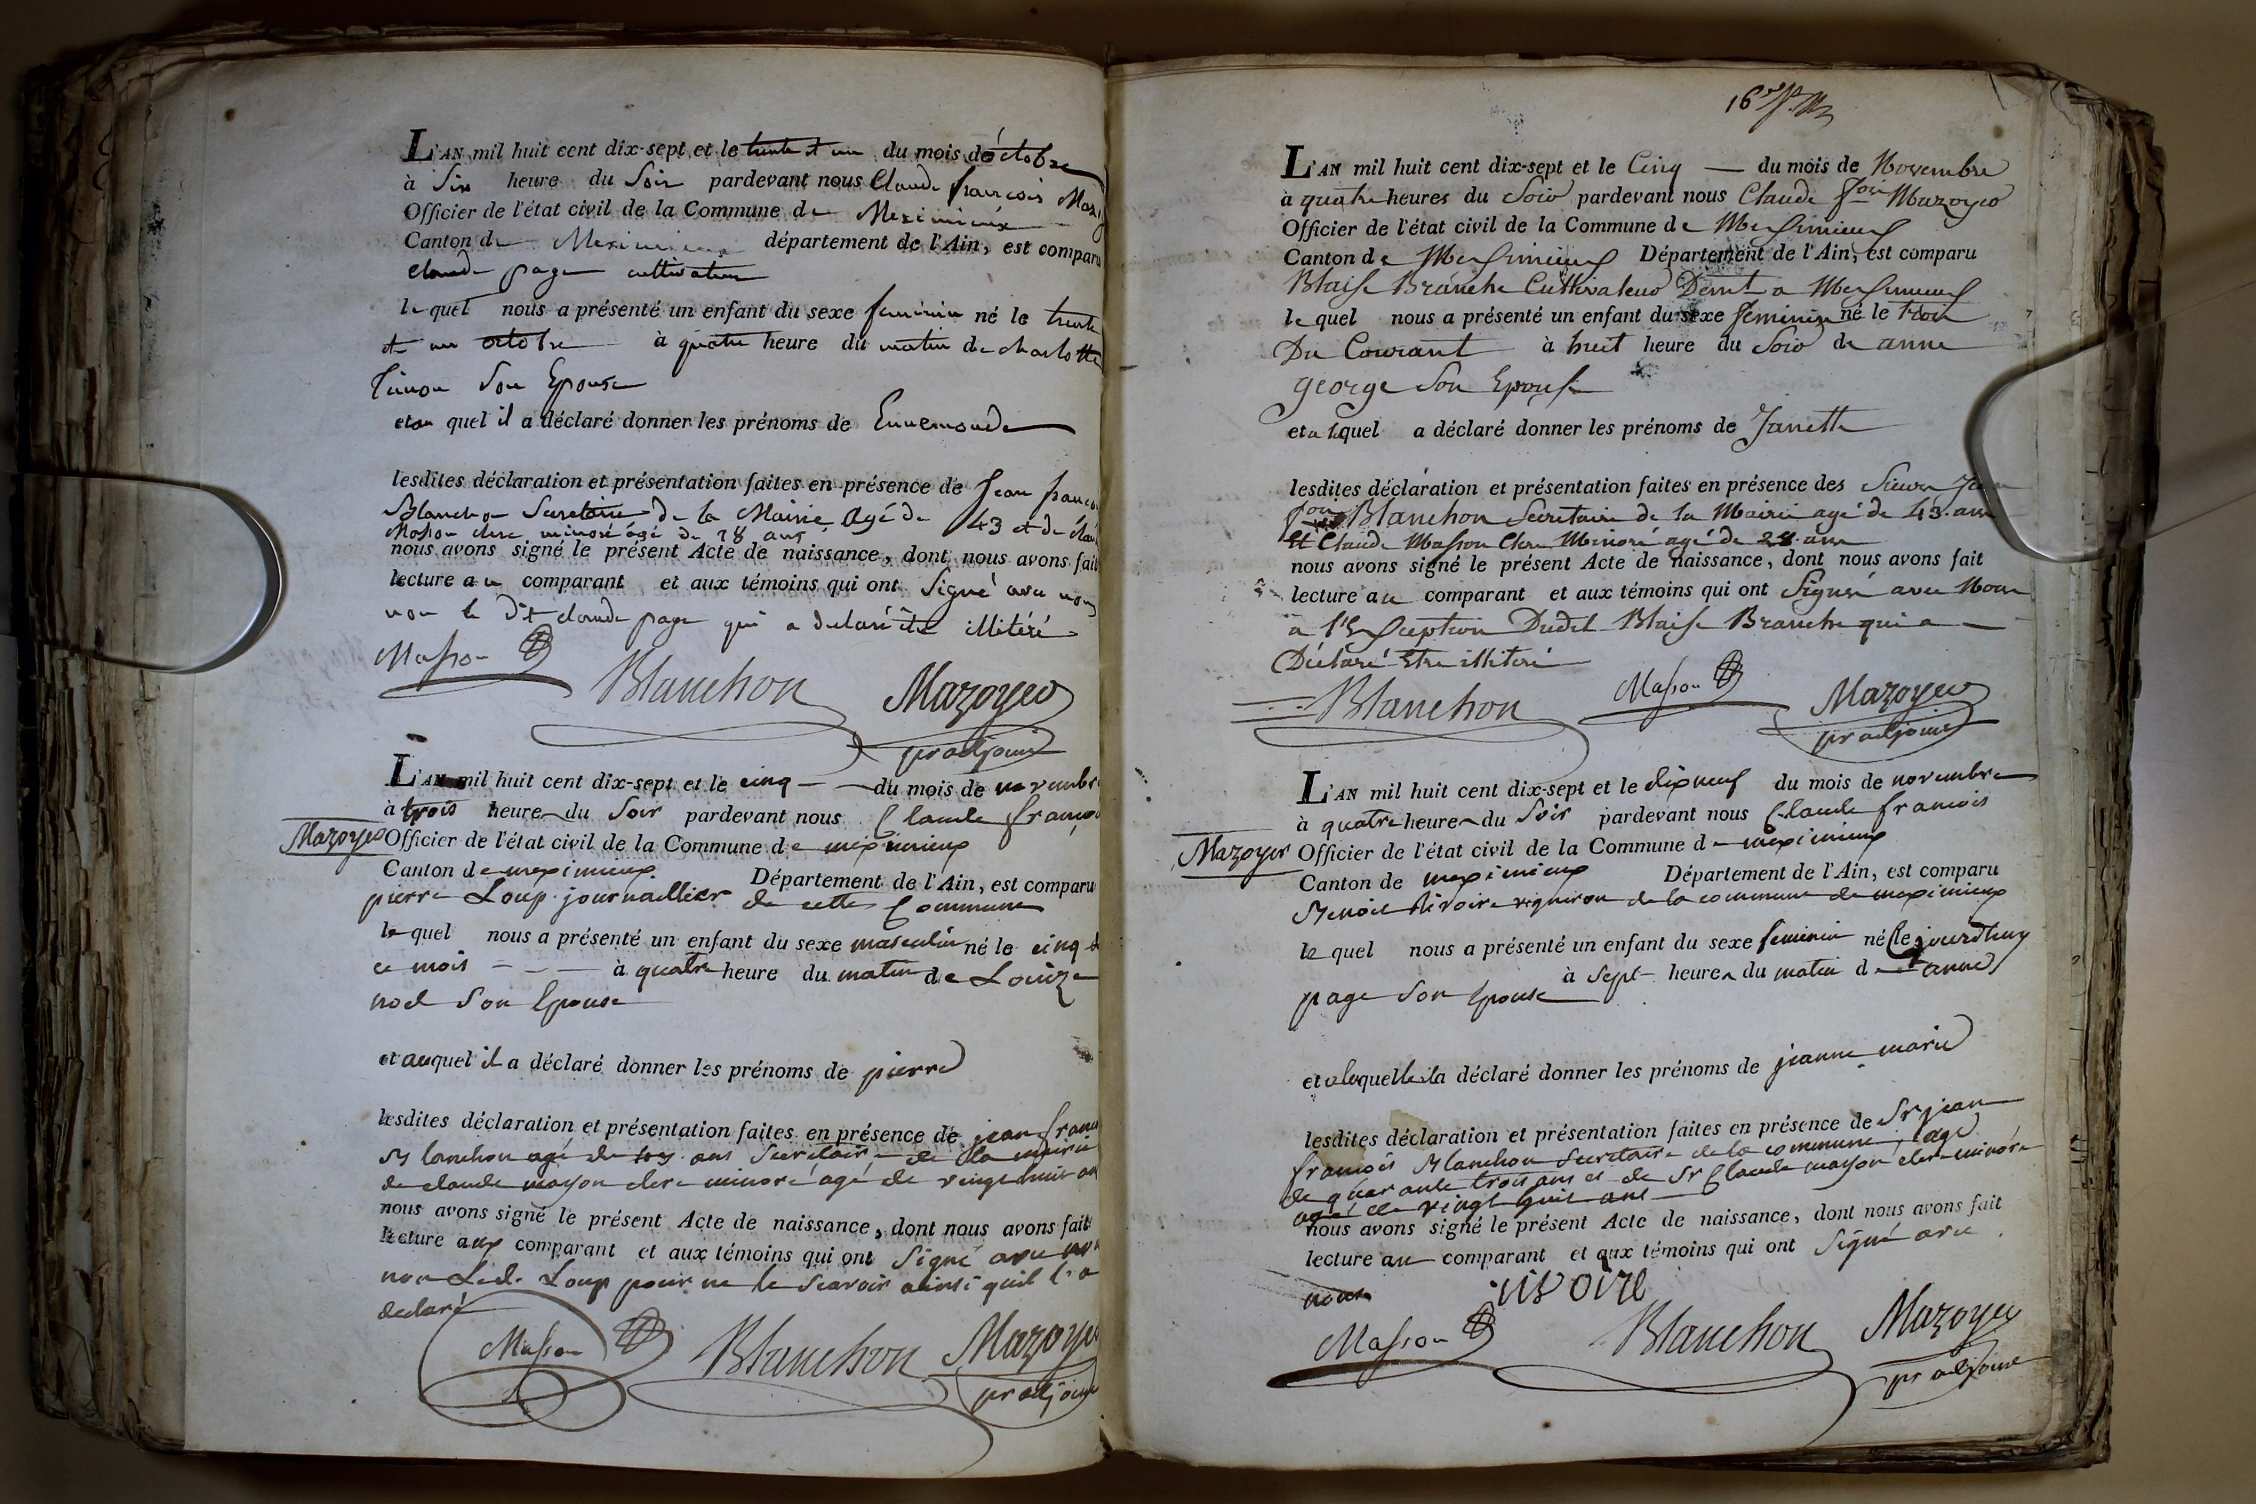 L'AN mil huit cent dix-sept et le trente et un du mois d'octobre
à Six heure du Soir pardevant nous Claude françois Mazoy
Officier de l'état civil de la Commune de Meximieux
Canton de Meximieux département de l'Ain, est comparu
claude page cultivateur
le quel nous a présenté un enfant du sexe feminin né le trente
et un octobre à quatre heure du matin de charlotte
Son Epouse
et au quel il a déclaré donner les prénoms de Ennemonde
lesdites déclaration et présentation faites en présence de Jean franco
Blanchon Secretaire de la Mairie Agé de 43 et de clau
Masson clerc minoré âgé de 28 ans
nous avons signé le présent Acte de naissance, dont nous avons fait
lecture au comparant et aux témoins qui ont Signé avec nous
non le dt claude page qui a declaré être illitéré
Masson Blanchon Mazoyer
pr adjoint
L'AN mil huit cent dix-sept et le cinq du mois de novembre
à trois heure du Soir pardevant nous Claude françois
Mazoyer Officier de l'état civil de la Commune de meximieux
Canton de meximieux Département de l'Ain, est comparu
pierre Loup journallier de cette Commune
le quel nous a présenté un enfant du sexe masculin né le cinq d
ce mois à quatre heure du matin de Louize
noel Son Epouse
et auquel il a déclaré donner les prénoms de pierre
lesdites déclaration et présentation faites en présence de jean franc
Blanchon agé de ans Secretaire de la mairie
de claude masson clerc minoré agé de vingt huit an
nous avons signé le présent Acte de naissance, dont nous avons fait
lecture aux comparant et aux témoins qui ont Signé avec nou
non Led. Loup pour ne le Scavoir ainsi quil l'a
declaré
Masson Blanchon Mazoyer
pr adjoint
16
L'AN mil huit cent dix-sept et le Cinq du mois de Novembre
à quatre heures du Soir pardevant nous Claude fois Mazoyer
Officier de l'état civil de la Commune de Meximieux
Canton de Meximieux Département de l'Ain, est comparu
Blaise Branche Cultivateur Demt a Meximieux
le quel nous a présenté un enfant du sexe feminin né le trois
Du Courant à huit heure du Soir de anne
george Son Epouse
et a lequel a déclaré donner les prénoms de Janette
lesdites déclaration et présentation faites en présence des Sieurs Jean
fois Blanchon Secretaire de la Mairie agé de 43. ans
Et Claude Masson Clerc Minoré agé de 28. ans
nous avons signé le présent Acte de naissance, dont nous avons fait
lecture au comparant et aux témoins qui ont Signé avec Nous
a l'Exception Dudit Blaise Branche qui a
Déclaré Etre illiteré
Blanchon Masson Mazoyer
pr adjoint
L'AN mil huit cent dix-sept et le dix neuf du mois de novembre
à quatre heure du Soir pardevant nous Claude francois
Mazoyer Officier de l'état civil de la Commune de meximieux
Canton de meximieux Département de l'Ain, est comparu
Benoit Rivoire vigneron de la commune de meximieux
le quel nous a présenté un enfant du sexe feminin né le jourdhuy
à Sept heures du matin de anne
page Son Epouse
et a laquelle il a déclaré donner les prénoms de jeanne marie
lesdites déclaration et présentation faites en présence de Sr jean
francois Blanchon Secretaire de la commune, agé
de quarante trois ans et de Sr Claude masson clerc minoré
agé de vingt huit ans
nous avons signé le présent Acte de naissance, dont nous avons fait
lecture au comparant et aux témoins qui ont Signé avec
nous rivoire
Masson Blanchon Mazoyer
pr adjoint